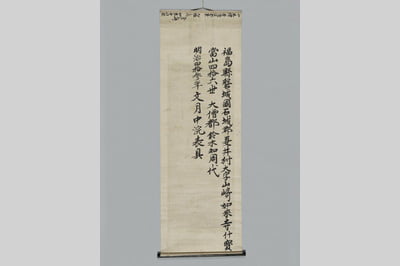 福島縣磐城國石城郡夏井村大字山崎如来寺什寳
當山四拾六世 大僧都鈴木知周代
明治四拾参年文月中浣表具